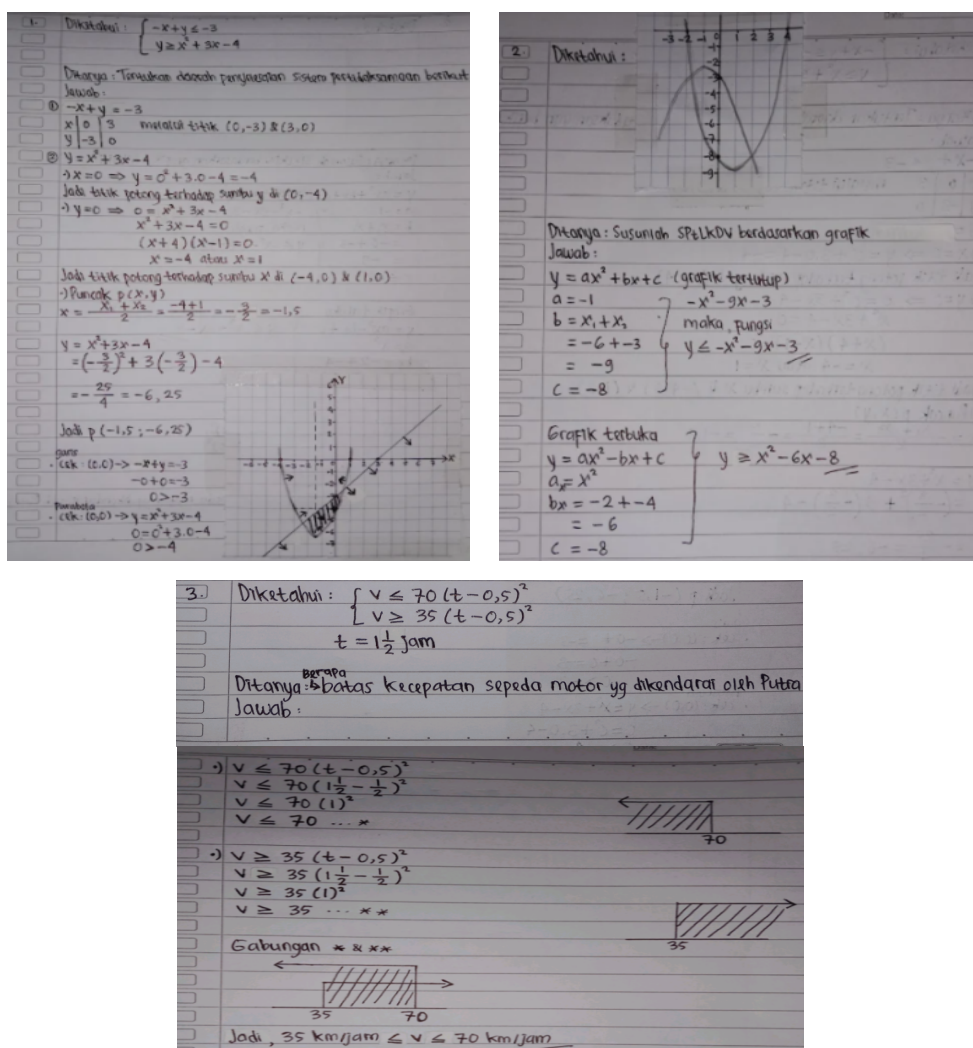 1. Diketahui : { -x+y ≤ -3
y ≥ x² + 3x - 4
Ditanya : Tentukan daerah penyelesaian sistem pertidaksamaan berikut
Jawab :
① -x+y = -3
x | 0 | 3 melalui titik (0,-3) & (3,0)
y | -3 | 0
② y = x² + 3x - 4
·) x=0 ⇒ y = 0² + 3.0 - 4 = -4
Jadi titik potong terhadap sumbu y di (0,-4)
·) y=0 ⇒ 0 = x² + 3x - 4
x² + 3x - 4 = 0
(x+4)(x-1) = 0
x = -4 atau x = 1
Jadi titik potong terhadap sumbu x di (-4,0) & (1,0)
·) Puncak p(x,y)
x = x₁ + x₂ / 2 = -4+1 / 2 = -3/2 = -1,5
y = x² + 3x - 4
= (-3/2)² + 3(-3/2) - 4
= -25/4 = -6,25
Jadi p(-1,5 ; -6,25)
garis
· cek : (0,0) → -x+y = -3
-0+0 = -3
0 > -3
Parabola
· cek : (0,0) → y = x² + 3x - 4
0 = 0² + 3.0 - 4
0 > -4
Y
X
2. Diketahui :
-3 -2 -1 0 1 2 3 4
-1
-2
-3
-4
-5
-6
-7
-8
-9
Ditanya : Susunlah SPtLKDV berdasarkan grafik
Jawab :
y = ax² + bx + c (grafik tertutup)
a = -1 -x² - 9x - 3
b = x₁ + x₂ maka fungsi
= -6 + -3 y ≤ -x² - 9x - 3
= -9
c = -8
Grafik terbuka
y = ax² - bx + c y ≥ x² - 6x - 8
ax = x²
bx = -2 + -4
= -6
c = -8
3. Diketahui : { v ≤ 70 (t - 0,5)²
v ≥ 35 (t - 0,5)²
t = 1 1/2 jam
Berapa
Ditanya : batas kecepatan sepeda motor yg dikendarai oleh Putra
Jawab :
·) v ≤ 70 (t - 0,5)²
v ≤ 70 (1 1/2 - 1/2)²
v ≤ 70 (1)²
v ≤ 70 .... *
70
·) v ≥ 35 (t - 0,5)²
v ≥ 35 (1 1/2 - 1/2)²
v ≥ 35 (1)²
v ≥ 35 .... **
35
Gabungan * & **
35 70
Jadi, 35 km/jam ≤ v ≤ 70 km/jam